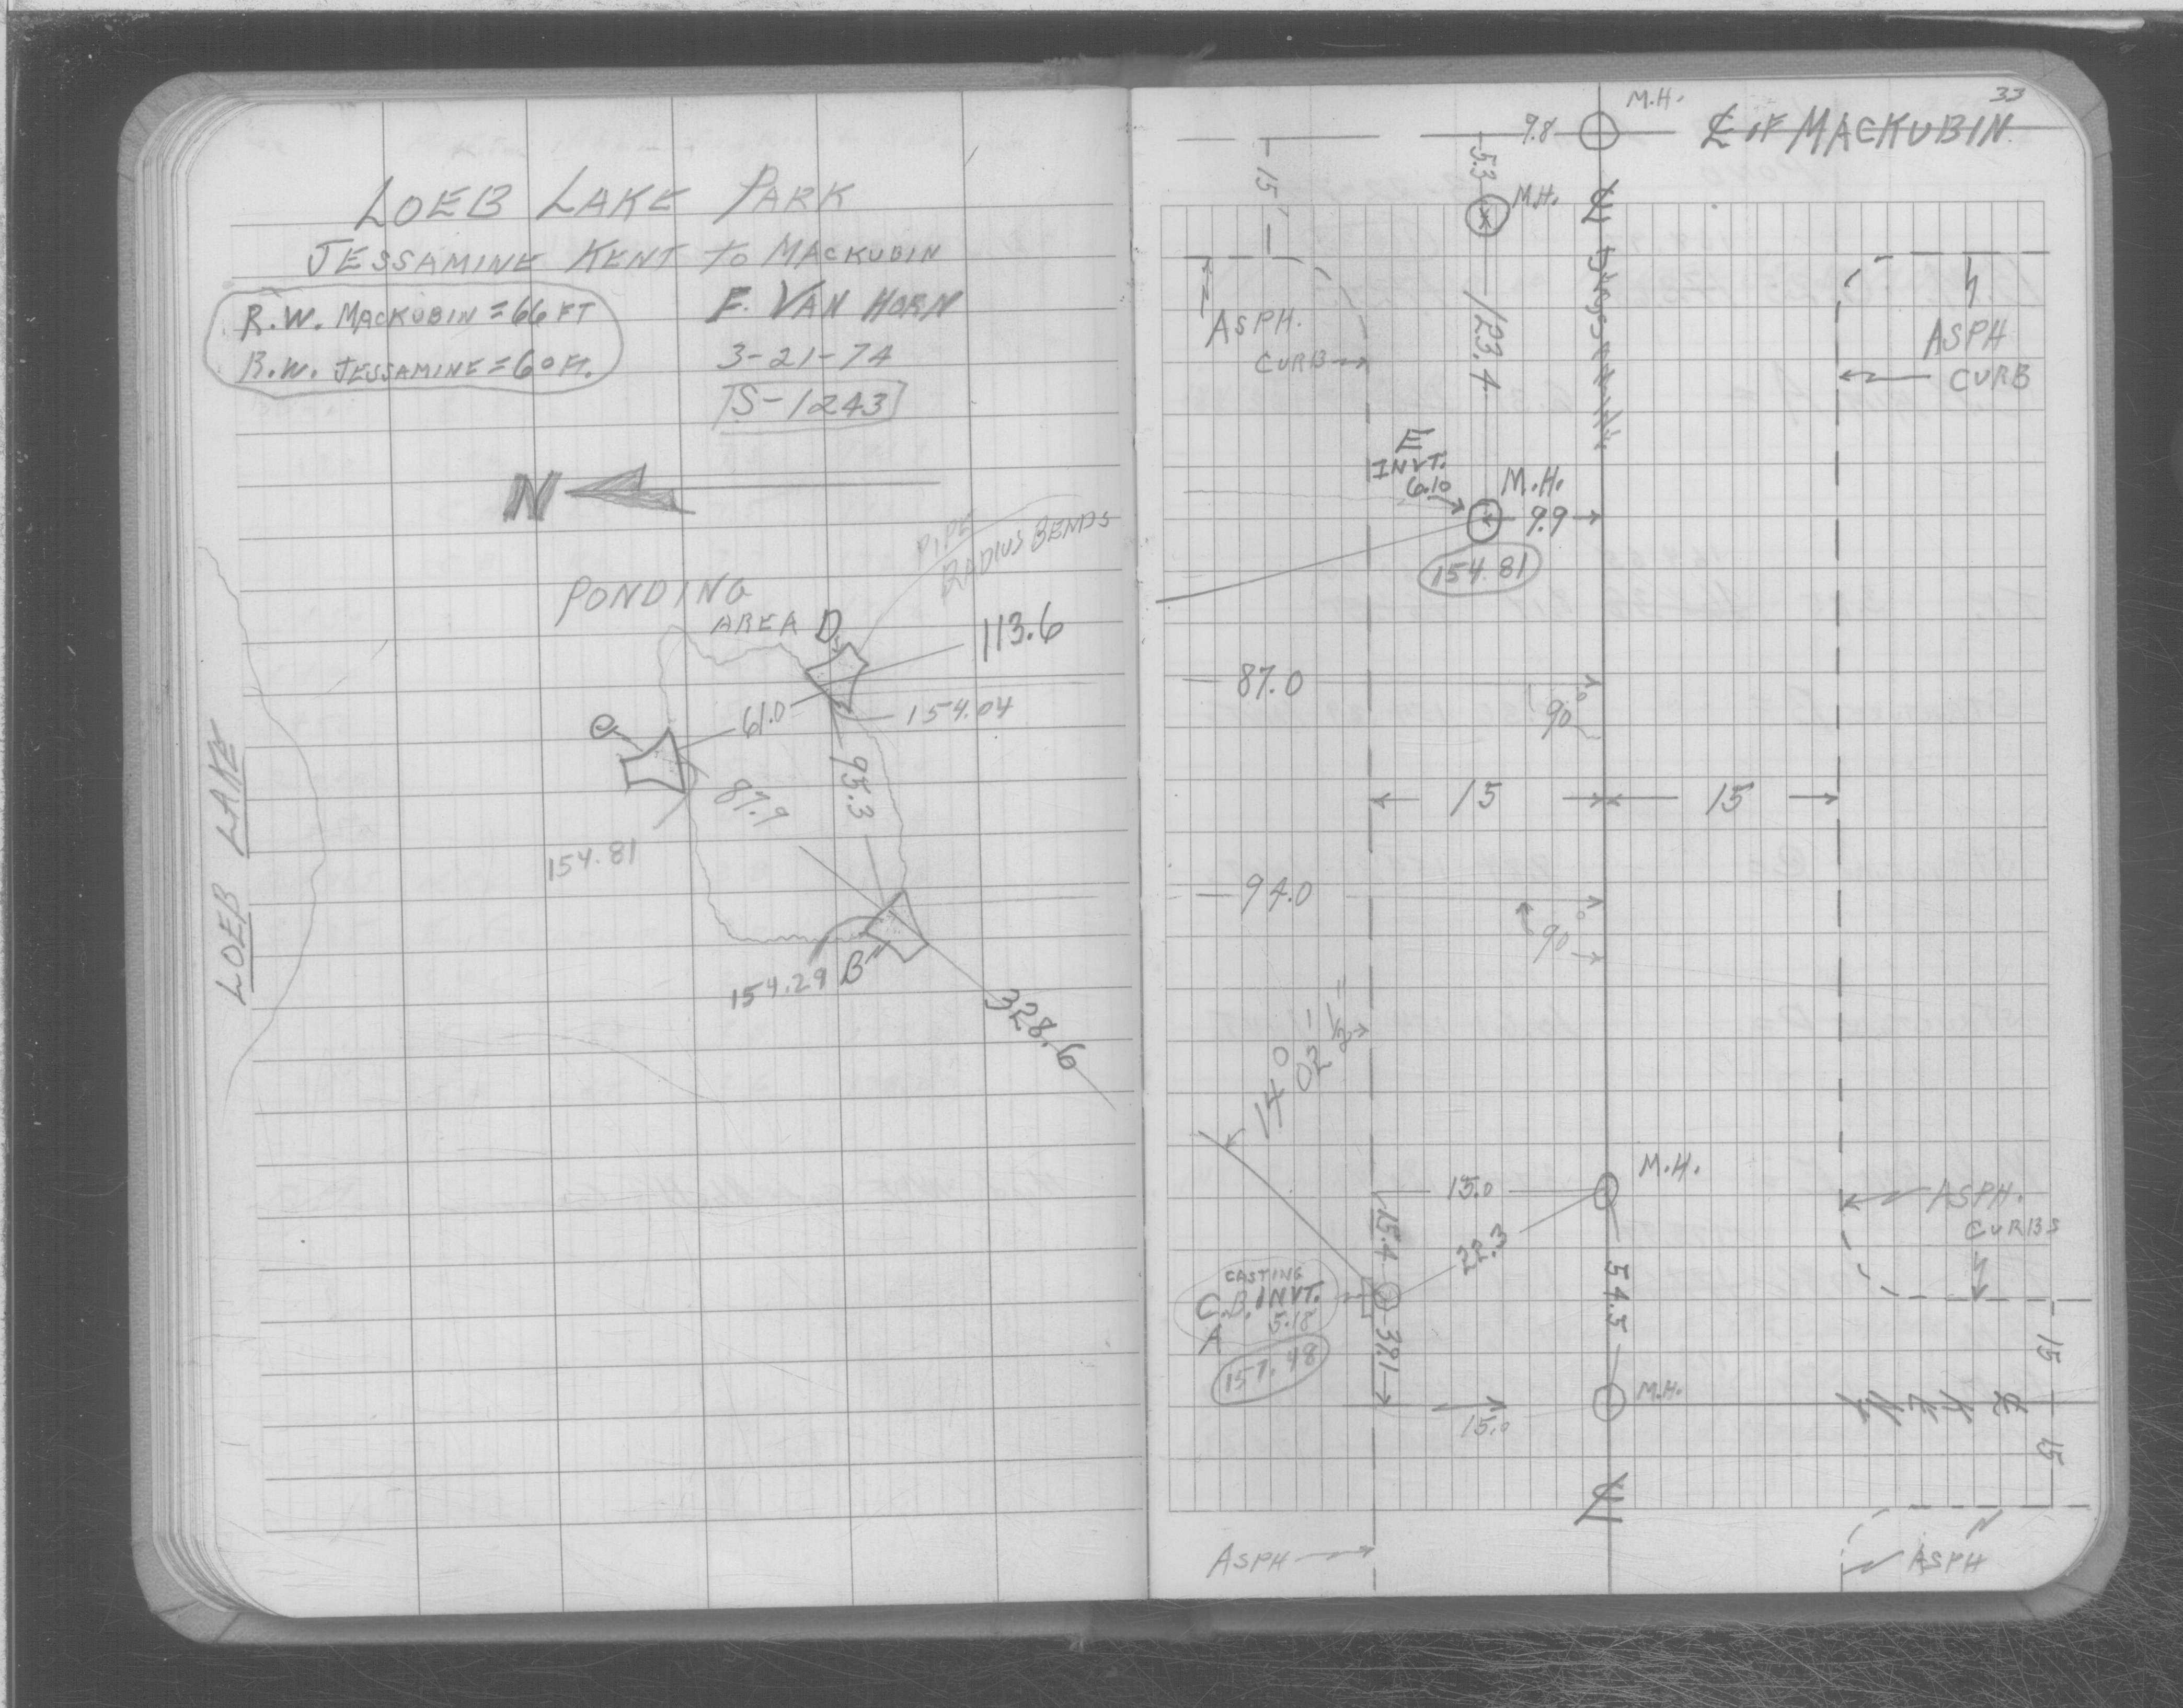 LOEB LAKE PARK
JESSAMINE KENT TO MACKUBIN
R.W. MACKUBIN = 66 FT
R.W. JESSAMINE = 60 FT.
E. VAN HORN
3-21-74
S-1243
N
PIPE
RADIUS BENDS
PONDING
AREA D
113.6
61.0
154.04
C
95.3
87.9
154.81
LOEB LAKE
154.29 B
328.6
33
M.H.
9.8
℄ OF MACKUBIN
15
5.3
M.H.
℄ JESSAMINE
ASPH.
CURB
123.4
ASPH
CURB
E
INVT.
6.10
M.H.
9.9
154.81
87.0
90°
15
15
94.0
90°
14° 02' ½"
M.H.
15.0
ASPH.
CURBS
15.4
22.3
54.5
CASTING
C.B. INVT.
5.18
A
157.48
39.1
15
M.H.
15.0
℄ KENT
15
ASPH
ASPH